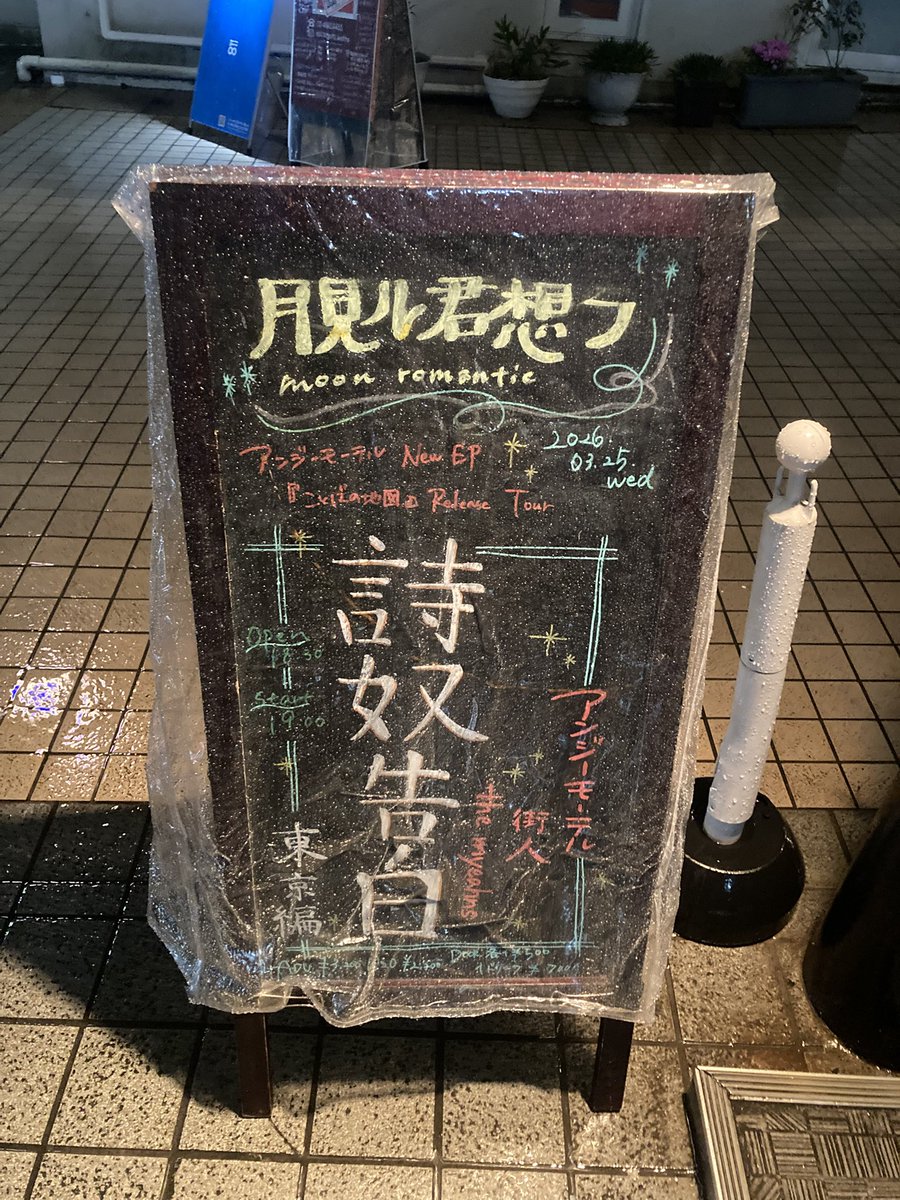 月見ル君想フ
moon romantic
アンジーモーテル New EP
『ことばの地図』 Release Tour
2026.
03.25
wed
詩
奴
告
白
東京編
アンジーモーテル
街人
the myeahns
Open
18:30
Start
19:00